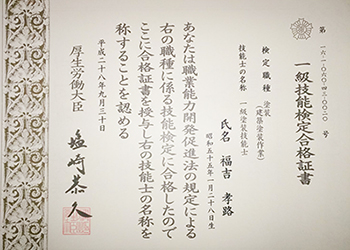 第一六-一-〇六〇-四三-〇〇二〇号
一級技能検定合格証書
検定職種 塗装
(建築塗装作業)
技能士の名称 一級塗装技能士
氏名 福吉 孝路
昭和五十五年一月二十八日生
あなたは職業能力開発促進法の規定による
右の職種に係る技能検定に合格したので
ここに合格証書を授与し右の技能士の名称を
称することを認める
平成二十八年九月三十日
厚生労働大臣
塩崎恭久